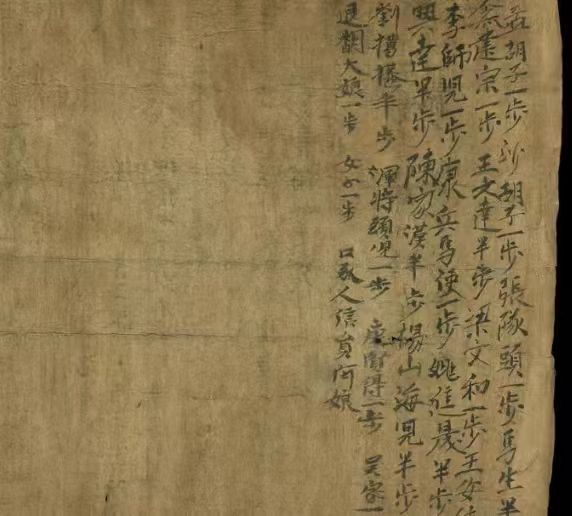 胡子一步 沙胡子一步 張隊頭一步 馬生半
宗一步 王文達半步 梁文和一步 王女
李師兒一步 康兵馬使一步 姚進晟半步
興達半步 陳家漢半步 楊山海兒半步
劉 半步 渾將頭兒一步 唐 得一步 吴家一
退 大娘一步 女子一步 口承人信負阿娘